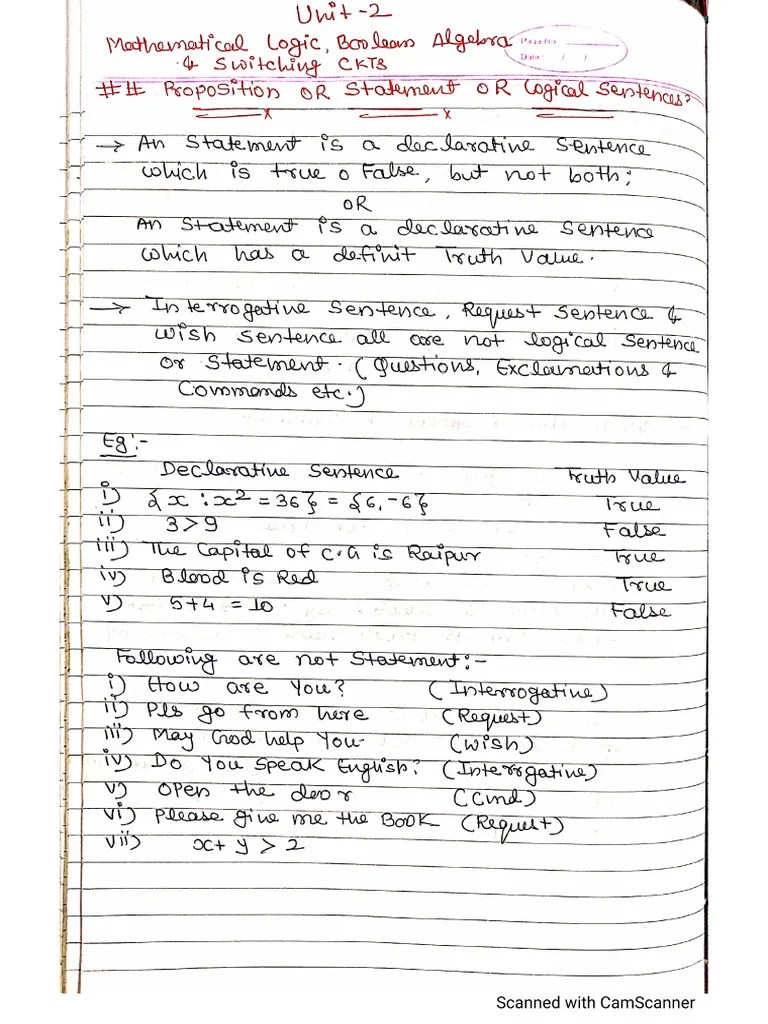 Unit-2
Mathematical Logic, Boolean Algebra
& Switching CKTS
Page No.
Date: / /
## Proposition OR Statement OR Logical Sentences:
→ An Statement is a declarative Sentence
which is true o False, but not both;
OR
An Statement is a declarative Sentence
which has a definit Truth Value.
→ Interrogative Sentence, Request Sentence &
wish Sentence all are not logical Sentence
or Statement. (Questions, Exclamations &
Commands etc.)
Eg:-
Declarative Sentence Truth Value
i) {x : x² = 36} = {6, -6} True
ii) 3 > 9 False
iii) The Capital of C.G is Raipur True
iv) Blood is Red True
v) 5+4 = 10 False
Following are not Statement:-
i) How are You? (Interrogative)
ii) Pls go from here (Request)
iii) May God help You (Wish)
iv) Do You Speak English? (Interrgative)
v) Open the door (Cmd)
vi) Please give me the Book (Request)
vii) x+ y > 2
Scanned with CamScanner